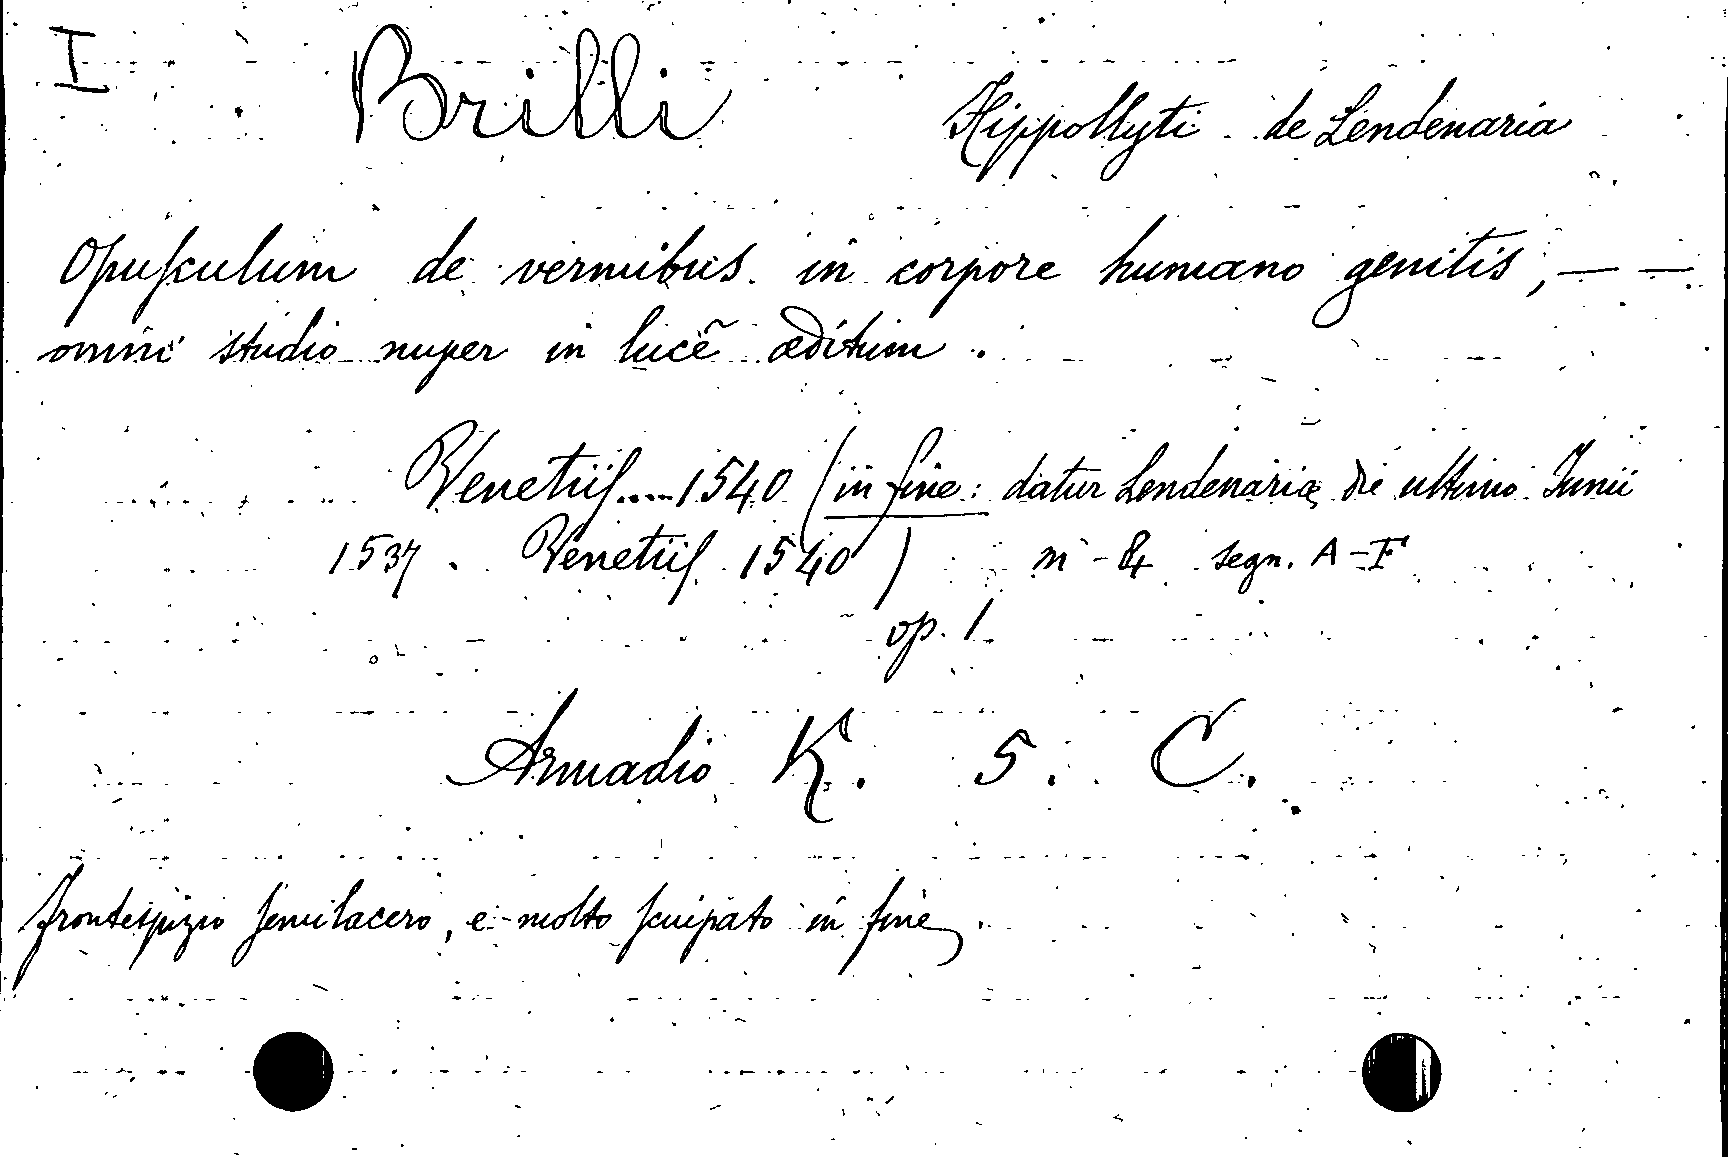 I Brilli Hippollyti de Lendenaria
Opuſculum de vermibus in corpore humano genitis, — —
omni studio nuper in lucẽ æditum .
Venetiiſ....1540 (in fine: datur Lendenariæ die ultimo Iunii
1537. Venetiiſ 1540) in - 8º segn. A-F
op. 1
Armadio K. 5. C.
frontespizio ſemilacero, e molto ſciupato in fine